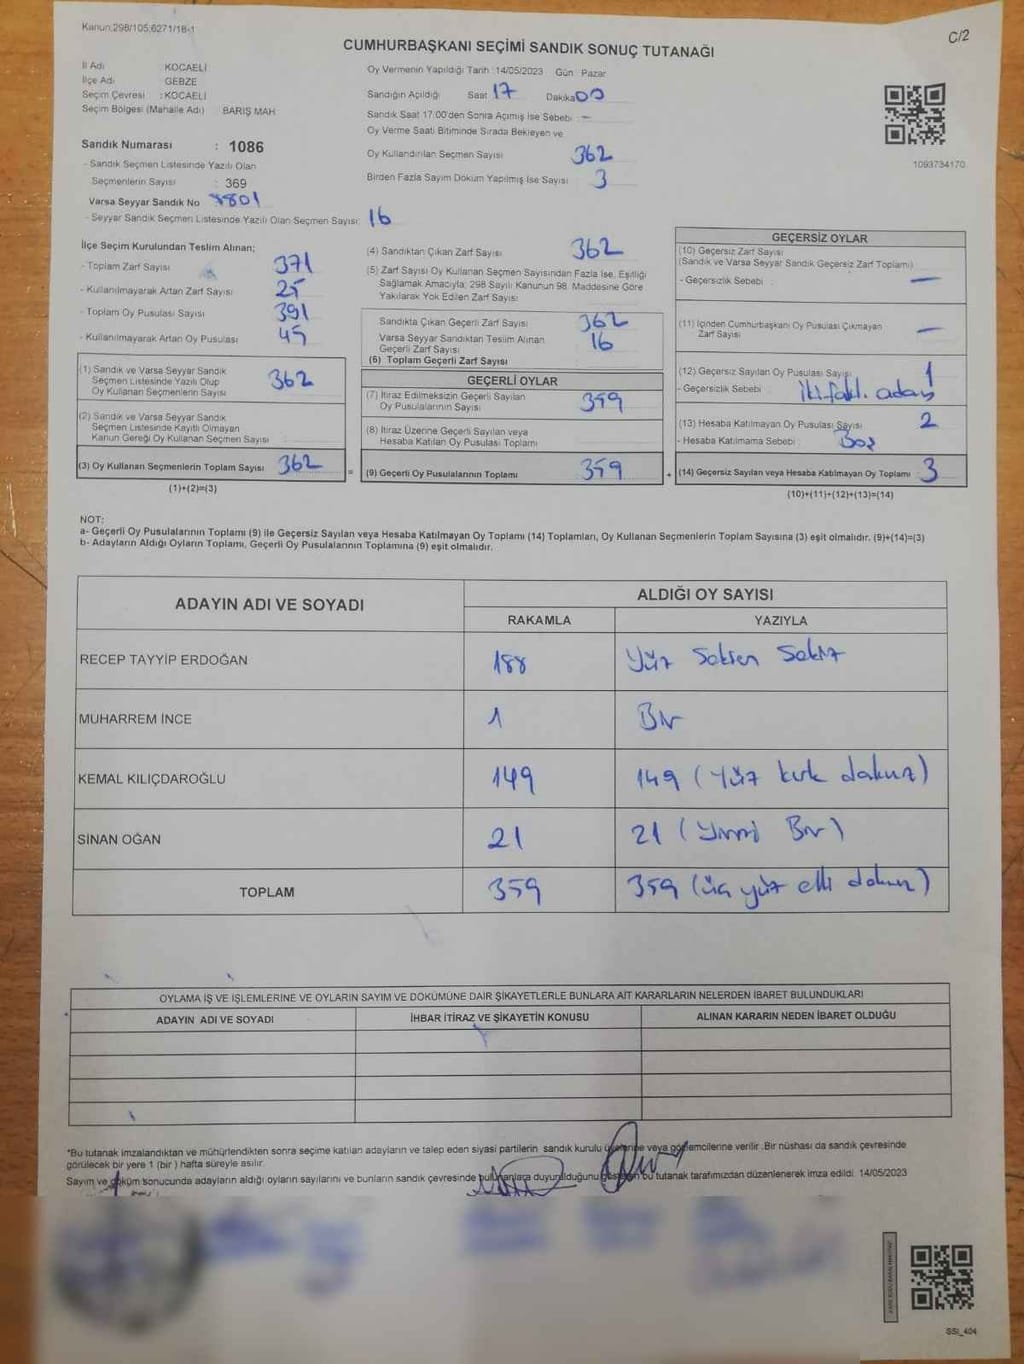 Kanun:298/105,6271/18-1
C/2
CUMHURBAŞKANI SEÇİMİ SANDIK SONUÇ TUTANAĞI
İl Adı : KOCAELİ
İlçe Adı : GEBZE
Seçim Çevresi : KOCAELİ
Seçim Bölgesi (Mahalle Adı) BARIŞ MAH
Oy Vermenin Yapıldığı Tarih :14/05/2023 Gün : Pazar
Sandığın Açıldığı Saat 17 Dakika 00
Sandık Saat 17:00'den Sonra Açımış İse Sebebi : -
Oy Verme Saati Bitiminde Sırada Bekleyen ve
Oy Kullandırılan Seçmen Sayısı 362
Birden Fazla Sayım Döküm Yapılmış İse Sayısı : 3
1093734170
Sandık Numarası : 1086
- Sandık Seçmen Listesinde Yazılı Olan
Seçmenlerin Sayısı : 369
Varsa Seyyar Sandık No 8801
- Seyyar Sandık Seçmen Listesinde Yazılı Olan Seçmen Sayısı: 16
İlçe Seçim Kurulundan Teslim Alınan;
- Toplam Zarf Sayısı 371
- Kullanılmayarak Artan Zarf Sayısı : 25
- Toplam Oy Pusulası Sayısı : 391
- Kullanılmayarak Artan Oy Pusulası 45
(1) Sandık ve Varsa Seyyar Sandık
Seçmen Listesinde Yazılı Olup
Oy Kullanan Seçmenlerin Sayısı 362
(2) Sandık ve Varsa Seyyar Sandık
Seçmen Listesinde Kayıtlı Olmayan
Kanun Gereği Oy Kullanan Seçmen Sayısı
(3) Oy Kullanan Seçmenlerin Toplam Sayısı 362 =
(1)+(2)=(3)
(4) Sandıktan Çıkan Zarf Sayısı : 362
(5) Zarf Sayısı Oy Kullanan Seçmen Sayısından Fazla İse, Eşitliği
Sağlamak Amacıyla; 298 Sayılı Kanunun 98. Maddesine Göre
Yakılarak Yok Edilen Zarf Sayısı :
Sandıkta Çıkan Geçerli Zarf Sayısı : 362
Varsa Seyyar Sandıktan Teslim Alınan
Geçerli Zarf Sayısı 16
(6) Toplam Geçerli Zarf Sayısı
GEÇERLİ OYLAR
(7) İtiraz Edilmeksizin Geçerli Sayılan
Oy Pusulalarının Sayısı 359
(8) İtiraz Üzerine Geçerli Sayılan veya
Hesaba Katılan Oy Pusulası Toplamı
(9) Geçerli Oy Pusulalarının Toplamı 359 +
GEÇERSİZ OYLAR
(10) Geçersiz Zarf Sayısı
(Sandık ve Varsa Seyyar Sandık Geçersiz Zarf Toplamı)
- Geçersizlik Sebebi : -
(11) İçinden Cumhurbaşkanı Oy Pusulası Çıkmayan
Zarf Sayısı -
(12) Geçersiz Sayılan Oy Pusulası Sayısı 1
- Geçersizlik Sebebi : İki farklı aday
(13) Hesaba Katılmayan Oy Pusulası Sayısı 2
- Hesaba Katılmama Sebebi : Boş
(14) Geçersiz Sayılan veya Hesaba Katılmayan Oy Toplamı 3
(10)+(11)+(12)+(13)=(14)
NOT:
a- Geçerli Oy Pusulalarının Toplamı (9) ile Geçersiz Sayılan veya Hesaba Katılmayan Oy Toplamı (14) Toplamları, Oy Kullanan Seçmenlerin Toplam Sayısına (3) eşit olmalıdır. (9)+(14)=(3)
b- Adayların Aldığı Oyların Toplamı, Geçerli Oy Pusulalarının Toplamına (9) eşit olmalıdır.
ADAYIN ADI VE SOYADI
ALDIĞI OY SAYISI
RAKAMLA YAZIYLA
RECEP TAYYİP ERDOĞAN 188 Yüz Seksen Sekiz
MUHARREM İNCE 1 Bir
KEMAL KILIÇDAROĞLU 149 149 (Yüz kırk dokuz)
SİNAN OĞAN 21 21 (Yirmi Bir)
TOPLAM 359 359 (üç yüz elli dokuz)
OYLAMA İŞ VE İŞLEMLERİNE VE OYLARIN SAYIM VE DÖKÜMÜNE DAİR ŞİKAYETLERLE BUNLARA AİT KARARLARIN NELERDEN İBARET BULUNDUKLARI
ADAYIN ADI VE SOYADI İHBAR İTİRAZ VE ŞİKAYETİN KONUSU ALINAN KARARIN NEDEN İBARET OLDUĞU
*Bu tutanak imzalandıktan ve mühürlendikten sonra seçime katılan adayların ve talep eden siyasi partilerin sandık kurulu üyelerine veya gözlemcilerine verilir. Bir nüshası da sandık çevresinde
görülecek bir yere 1 (bir) hafta süreyle asılır.
Sayım ve döküm sonucunda adayların aldığı oyların sayılarını ve bunların sandık çevresinde bulunanlara duyurulduğunu gösteren bu tutanak tarafımızdan düzenlenerek imza edildi. 14/05/2023
SSI_404